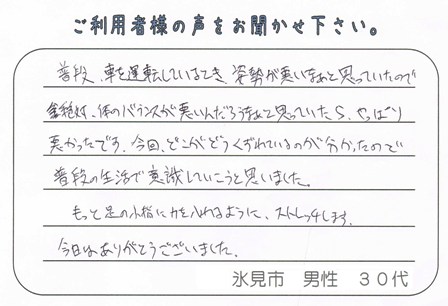 ご利用者様の声をお聞かせ下さい。
普段、車を運転しているとき、姿勢が悪いなぁと思っていたので
絶対、体のバランスが悪いんだろうなぁと思っていたら、やっぱり
悪かったです。今回、どこがどうくずれているのが分かったので
普段の生活で意識していこうと思いました。
もっと足の小指に力を入れるように、ストレッチします。
今日はありがとうございました。
氷見市 男性 30代